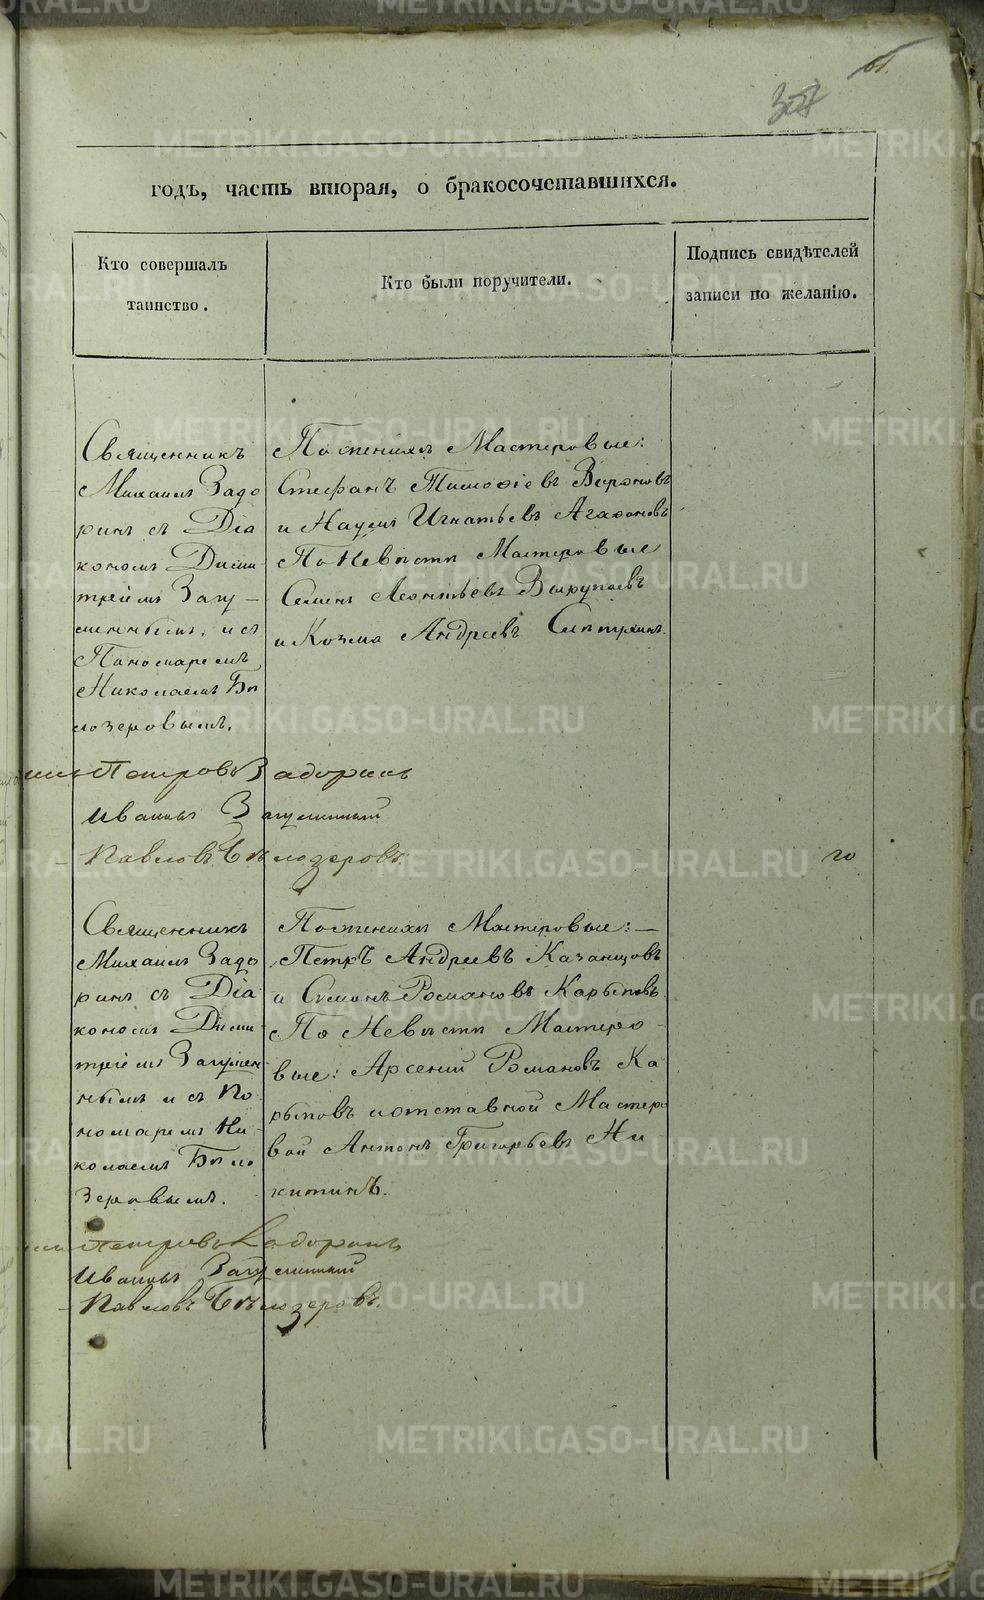 61.
годъ, часть вторая, о бракосочетавшихся.
Кто совершалъ
таинство.
Кто были поручители.
Подпись свидѣтелей
записи по желанію.
Священникъ
Михаилъ Задо
ринъ съ Діа
кономъ Дими
тріемъ Загу-
меннымъ, и съ
Пономаремъ
Николаемъ Бѣ
лозеровымъ.
По женихѣ Мастеровые:
Стефанъ Тимоѳіевъ
и Наумъ Игнатьевъ Агафоновъ
По Невѣстѣ Мастеровые
Семенъ Леонтьевъ
и Козма Андреевъ
Петровъ Задоринъ
Ивановъ Загуменный
Павловъ Бѣлозеровъ.
Священникъ
Михаилъ Задо
ринъ съ Діа
кономъ Дими
тріемъ Загумен
нымъ и съ По
номаремъ Ни
колаемъ Бѣло
зеровымъ.
По женихѣ Мастеровые:—
Петръ Андреевъ Казанцовъ
и Симонъ Романовъ
По Невѣстѣ Мастеро-
вые: Арсений Романовъ Ка
и отставной Мастеро
вой Антонъ Григорьевъ Ни
китинъ.
Петровъ Задоринъ
Ивановъ Загуменный
Павловъ Бѣлозеровъ.
METRIKI.GASO-URAL.RU